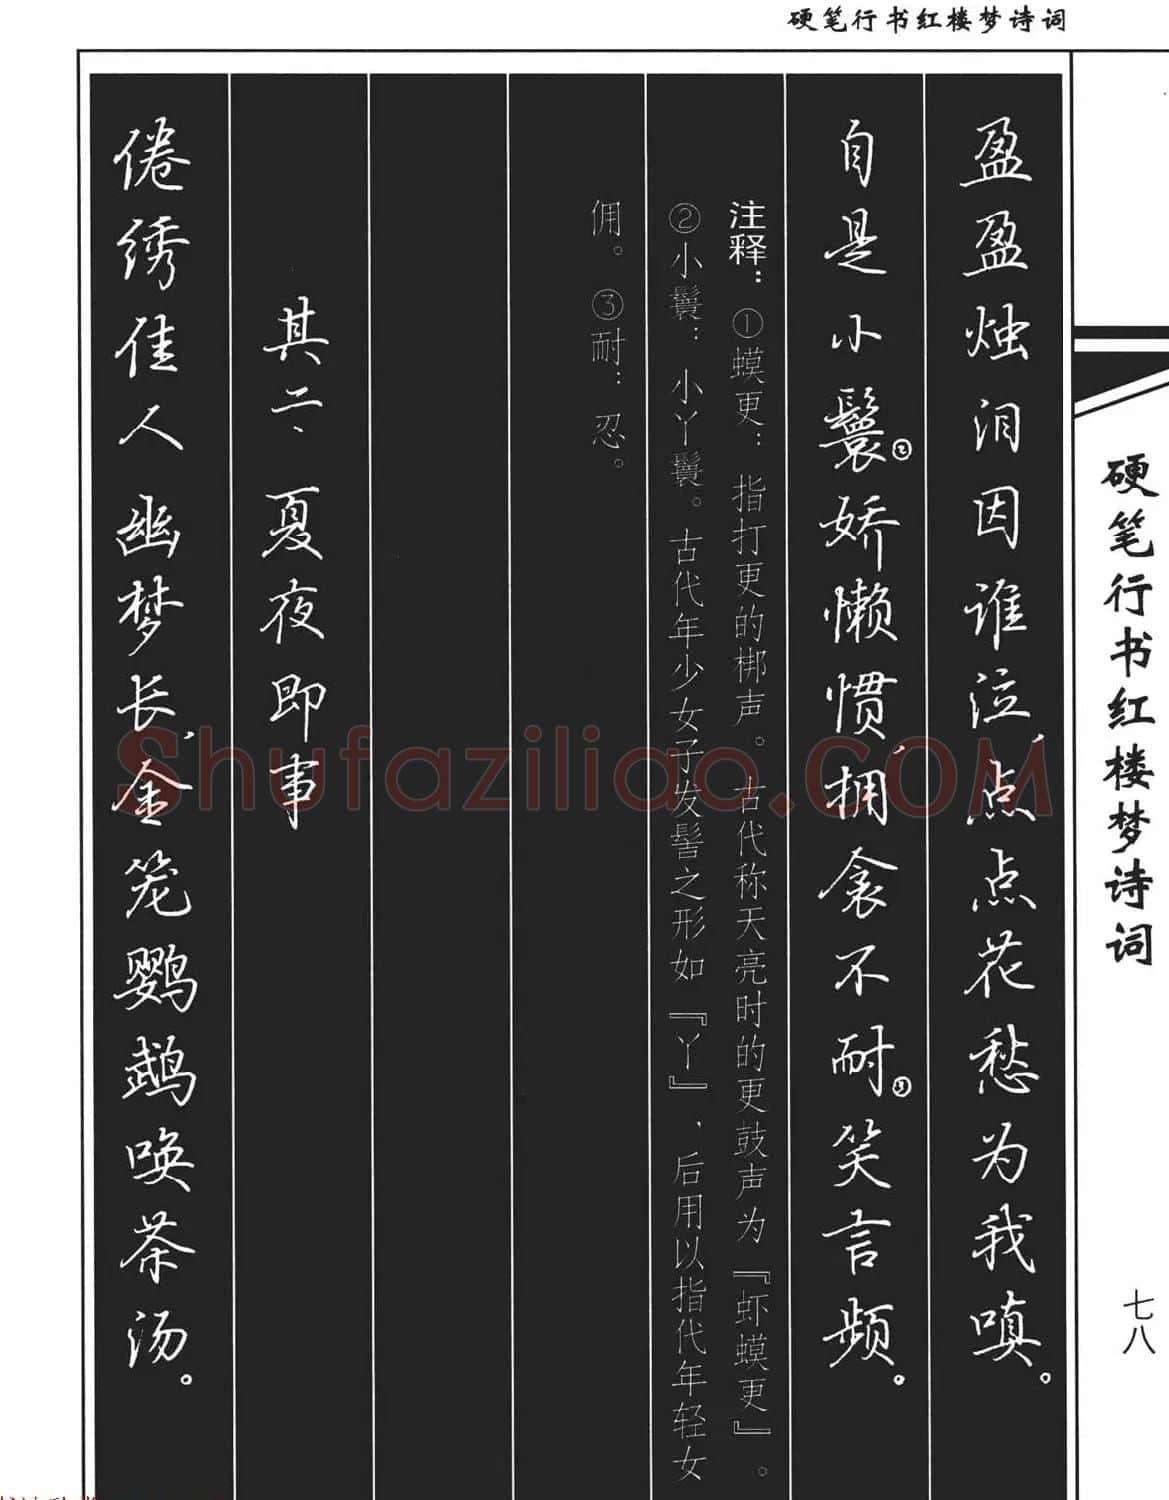 硬笔行书红楼梦诗词
盈盈烛泪因谁泣，点点花愁为我嗔。
自是小鬟②娇懒惯，拥衾不耐③笑言频。
注释：①蟆更：指打更的梆声。古代称天亮时的更鼓声为『虾蟆更』。
②小鬟：小丫鬟。古代年少女子发髻之形如『丫』，后用以指代年轻女
佣。③耐：忍。
其二、夏夜即事
倦绣佳人幽梦长，金笼鹦鹉唤茶汤。
硬笔行书红楼梦诗词
七八
Shufaziliao.COM